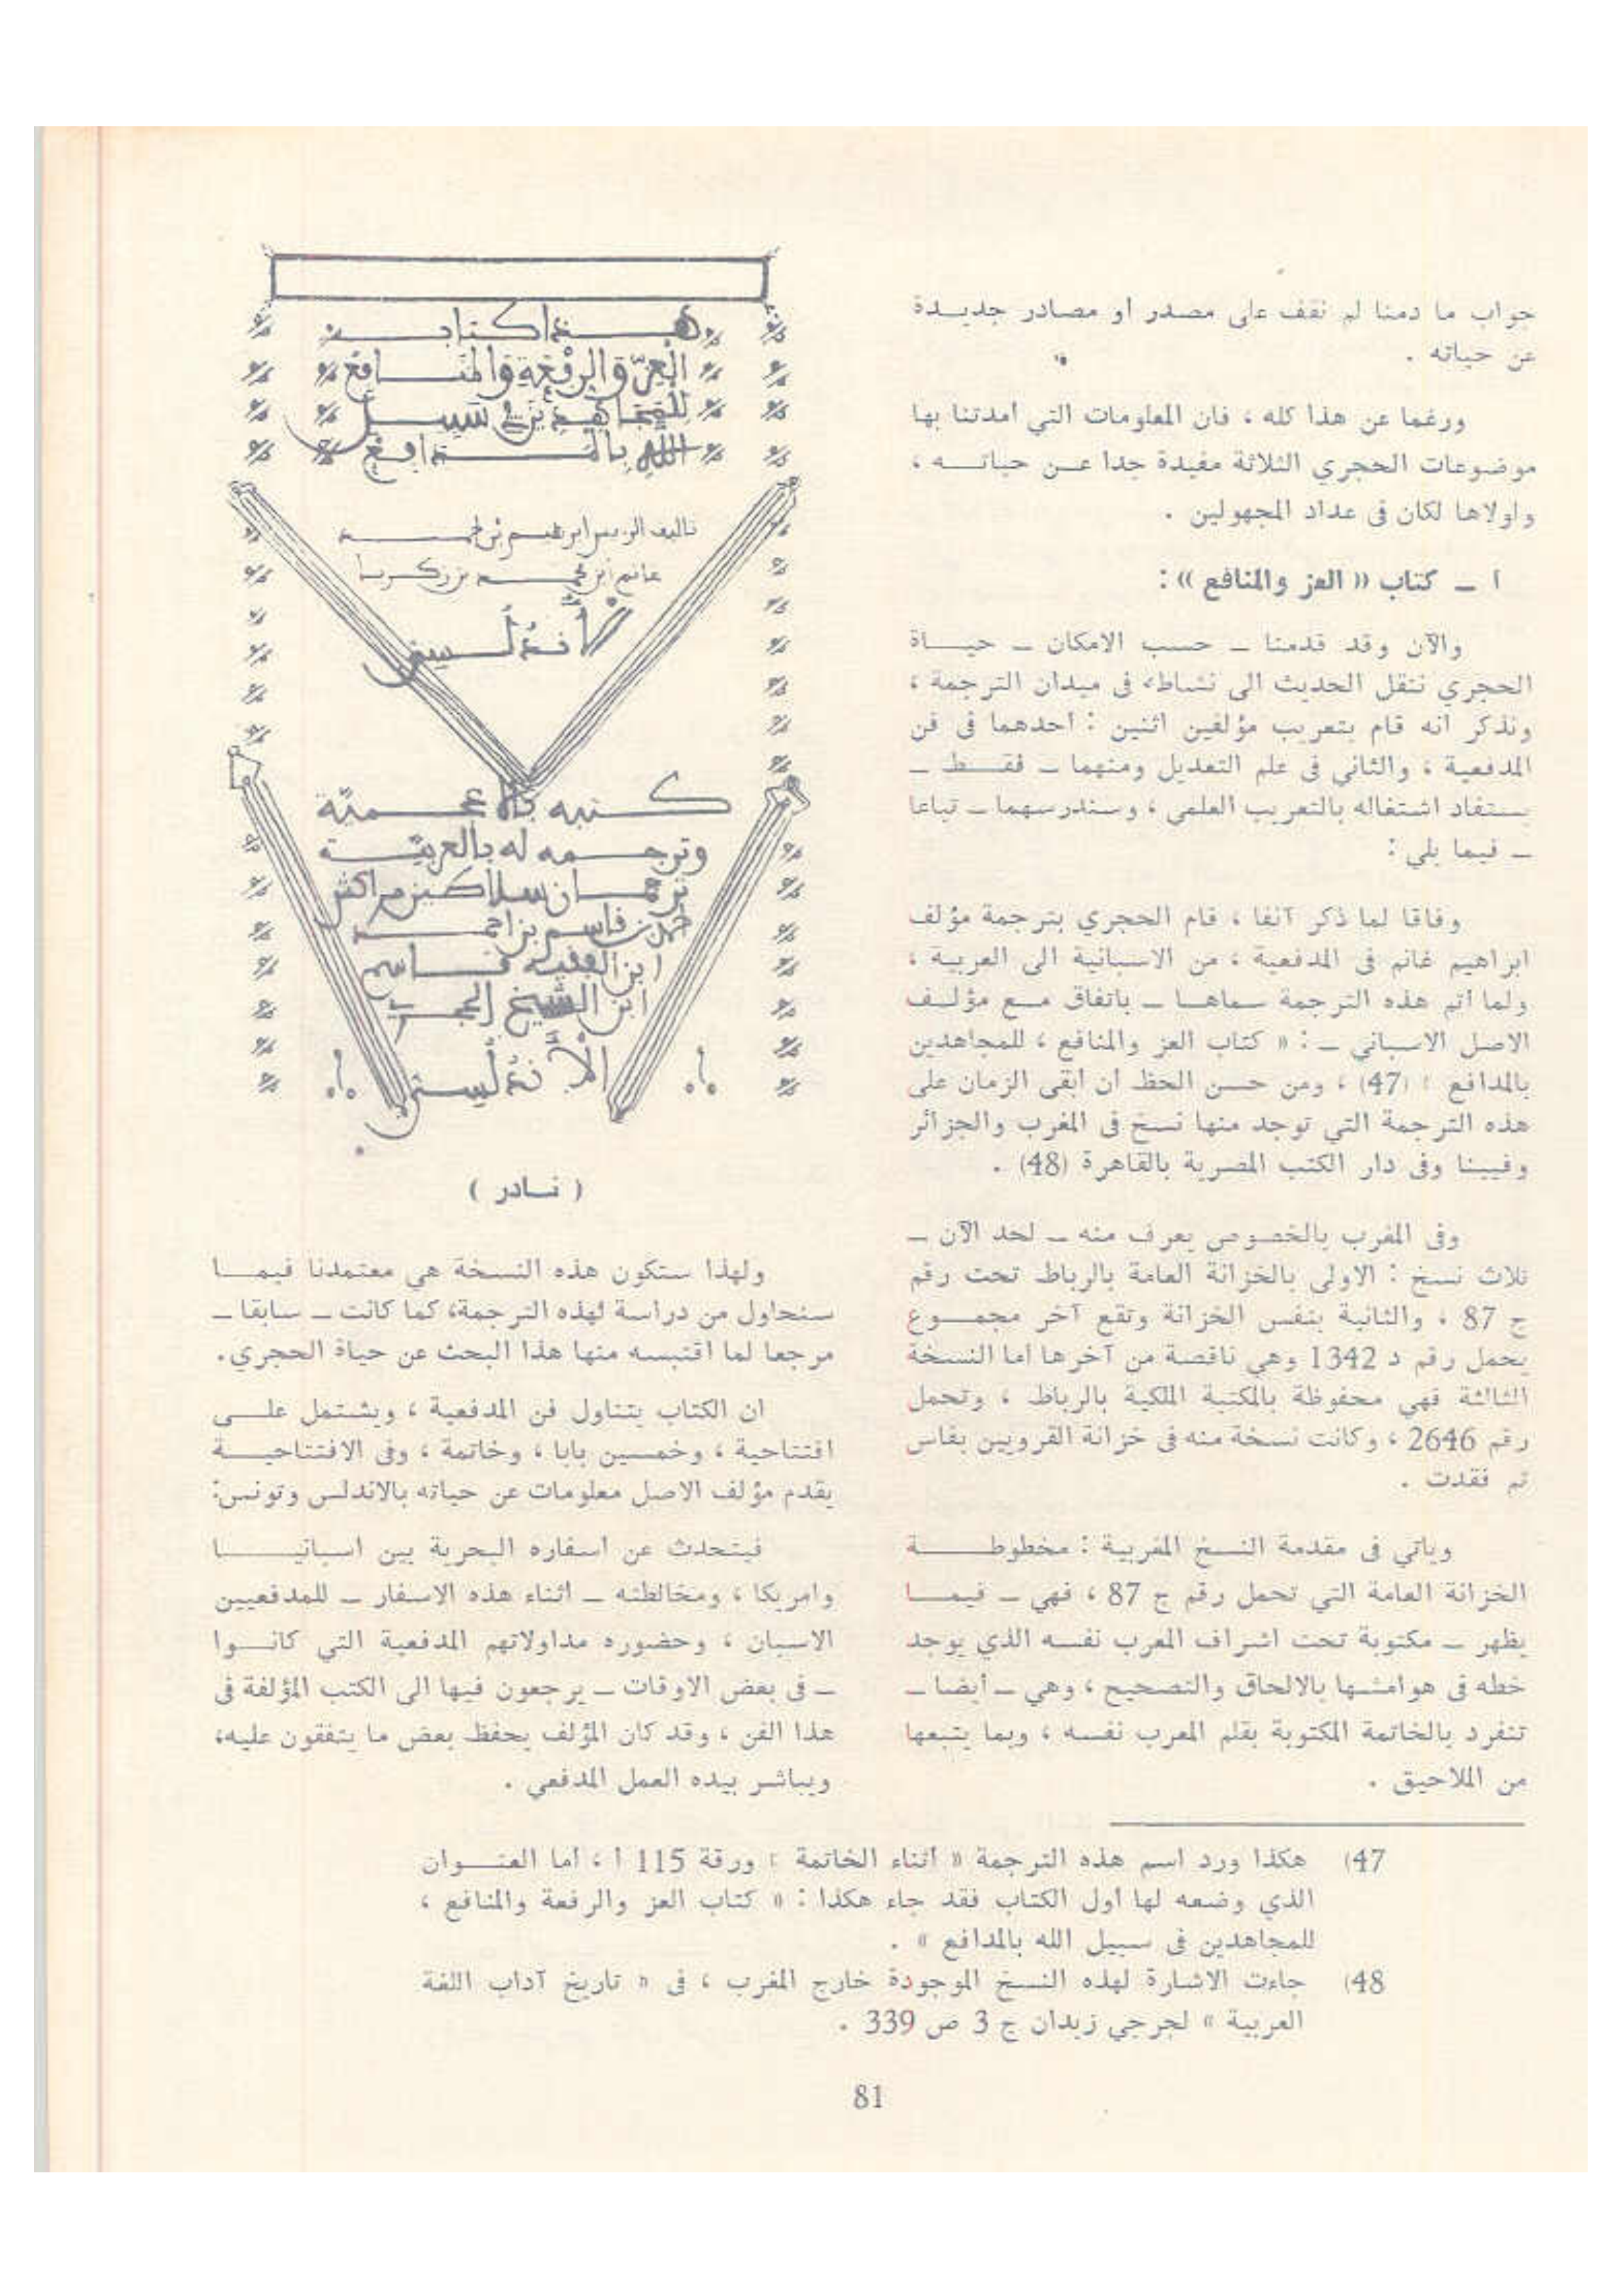 جواب ما دمنا لم نقف على مصدر أو مصادر جديدة
عن حياته .
ورغما عن هذا كله ، فان المعلومات التي أمدتنا بها
موضوعات الحجري الثلاثة مفيدة جدا عن حياته ،
ولولاها لكان فى عداد المجهولين .
أ ـ كتاب « العز والمنافع » :
والآن وقد قدمنا ـ حسب الامكان ـ حياة
الحجري ننقل الحديث الى نشاطه فى ميدان الترجمة ،
ونذكر أنه قام بتعريب مؤلفين اثنين : أحدهما فى فن
المدفعية ، والثاني فى علم التعديل ومنهما ـ فقط ـ
يستفاد اشتغاله بالتعريب العلمي ، وسندرسهما ـ تباعا
ـ فيما يلي :
وفاقا لما ذكر آنفا ، قام الحجري بترجمة مؤلف
ابراهيم غانم فى المدفعية ، من الاسبانية الى العربية ،
ولما أتم هذه الترجمة سماها ـ باتفاق مع مؤلف
الاصل الاسباني ـ : « كتاب العز والمنافع ، للمجاهدين
بالمدافع » (47) ، ومن حسن الحظ أن أبقى الزمان على
هذه الترجمة التي توجد منها نسخ فى المغرب والجزائر
وفيينا وفى دار الكتب المصرية بالقاهرة (48) .
وفى المغرب بالخصوص يعرف منه ـ لحد الآن ـ
ثلاث نسخ : الاولى بالخزانة العامة بالرباط تحت رقم
ج 87 ، والثانية بنفس الخزانة وتقع آخر مجموع
يحمل رقم د 1342 وهي ناقصة من آخرها أما النسخة
الثالثة فهي محفوظة بالمكتبة الملكية بالرباط ، وتحمل
رقم 2646 ، وكانت نسخة منه فى خزانة القرويين بفاس
ثم فقدت .
ويأتي فى مقدمة النسخ المغربية : مخطوطة
الخزانة العامة التي تحمل رقم ج 87 ، فهي ـ فيما
يظهر ـ مكتوبة تحت اشراف المعرب نفسه الذي يوجد
خطه فى هوامشها بالالحاق والتصحيح ، وهي ـ أيضا ـ
تنفرد بالخاتمة المكتوبة بقلم المعرب نفسه ، وبما يتبعها
من الملاحيق .
هذا كتاب
العز والرفعة والمنافع
للمجاهدين في سبيل
الله بالمدافع
تاليف الريس ابرهيم بن احمد
غانم بن محمد بن زكرياء
الأندلسي
كتبه بالاعجمية
وترجمه له بالعربية
ترجمان سلاطين مراكش
احمد بن قاسم بن احمد
ابن الفقيه قاسم
ابن الشيخ الحجري
الأندلسي
( نادر )
ولهذا ستكون هذه النسخة هي معتمدنا فيما
سنحاول من دراسة لهذه الترجمة، كما كانت ـ سابقا ـ
مرجعا لما اقتبسه منها هذا البحث عن حياة الحجري .
ان الكتاب يتناول فن المدفعية ، ويشتمل على
افتتاحية ، وخمسين بابا ، وخاتمة ، وفى الافتتاحية
يقدم مؤلف الاصل معلومات عن حياته بالاندلس وتونس :
فيتحدث عن أسفاره البحرية بين اسبانيا
وامريكا ، ومخالطته ـ أثناء هذه الاسفار ـ للمدفعيين
الاسبان ، وحضوره مداولاتهم المدفعية التي كانوا
ـ فى بعض الاوقات ـ يرجعون فيها الى الكتب المؤلفة فى
هذا الفن ، وقد كان المؤلف يحفظ بعض ما يتفقون عليه،
ويباشر بيده العمل المدفعي .
47) هكذا ورد اسم هذه الترجمة « أثناء الخاتمة » ورقة 115 أ ، أما العنوان
الذي وضعه لها أول الكتاب فقد جاء هكذا : « كتاب العز والرفعة والمنافع ،
للمجاهدين فى سبيل الله بالمدافع » .
48) جاءت الاشارة لهذه النسخ الموجودة خارج المغرب ، فى « تاريخ آداب اللغة
العربية » لجرجي زيدان ج 3 ص 339 .
81